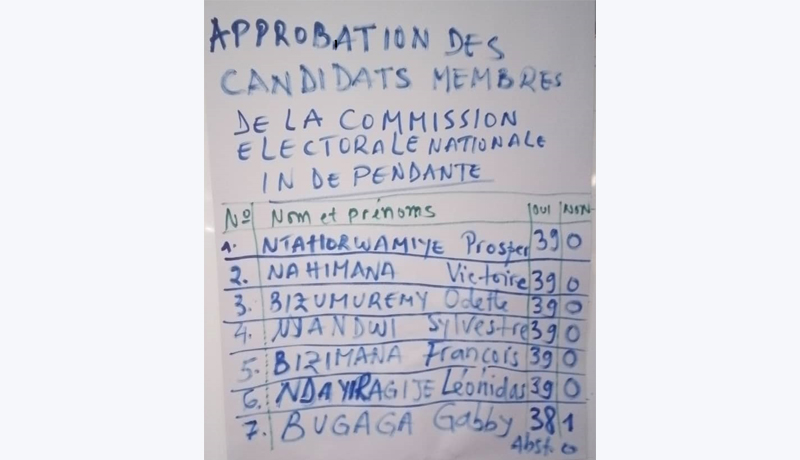 APPROBATION DES
CANDIDATS MEMBRES
DE LA COMMISSION
ELECTORALE NATIONALE
INDEPENDANTE
N° Nom et prénoms OUI NON
1. NTAHORWAMIYE Prosper 39 0
2. NAHIMANA Victoire 39 0
3. BIZUMUREMY Odette 39 0
4. NYANDWI Sylvestre 39 0
5. BIZIMANA François 39 0
6. NDAYIRAGIJE Léonidas 39 0
7. BUGAGA Gabby 38 1
Abst. 0